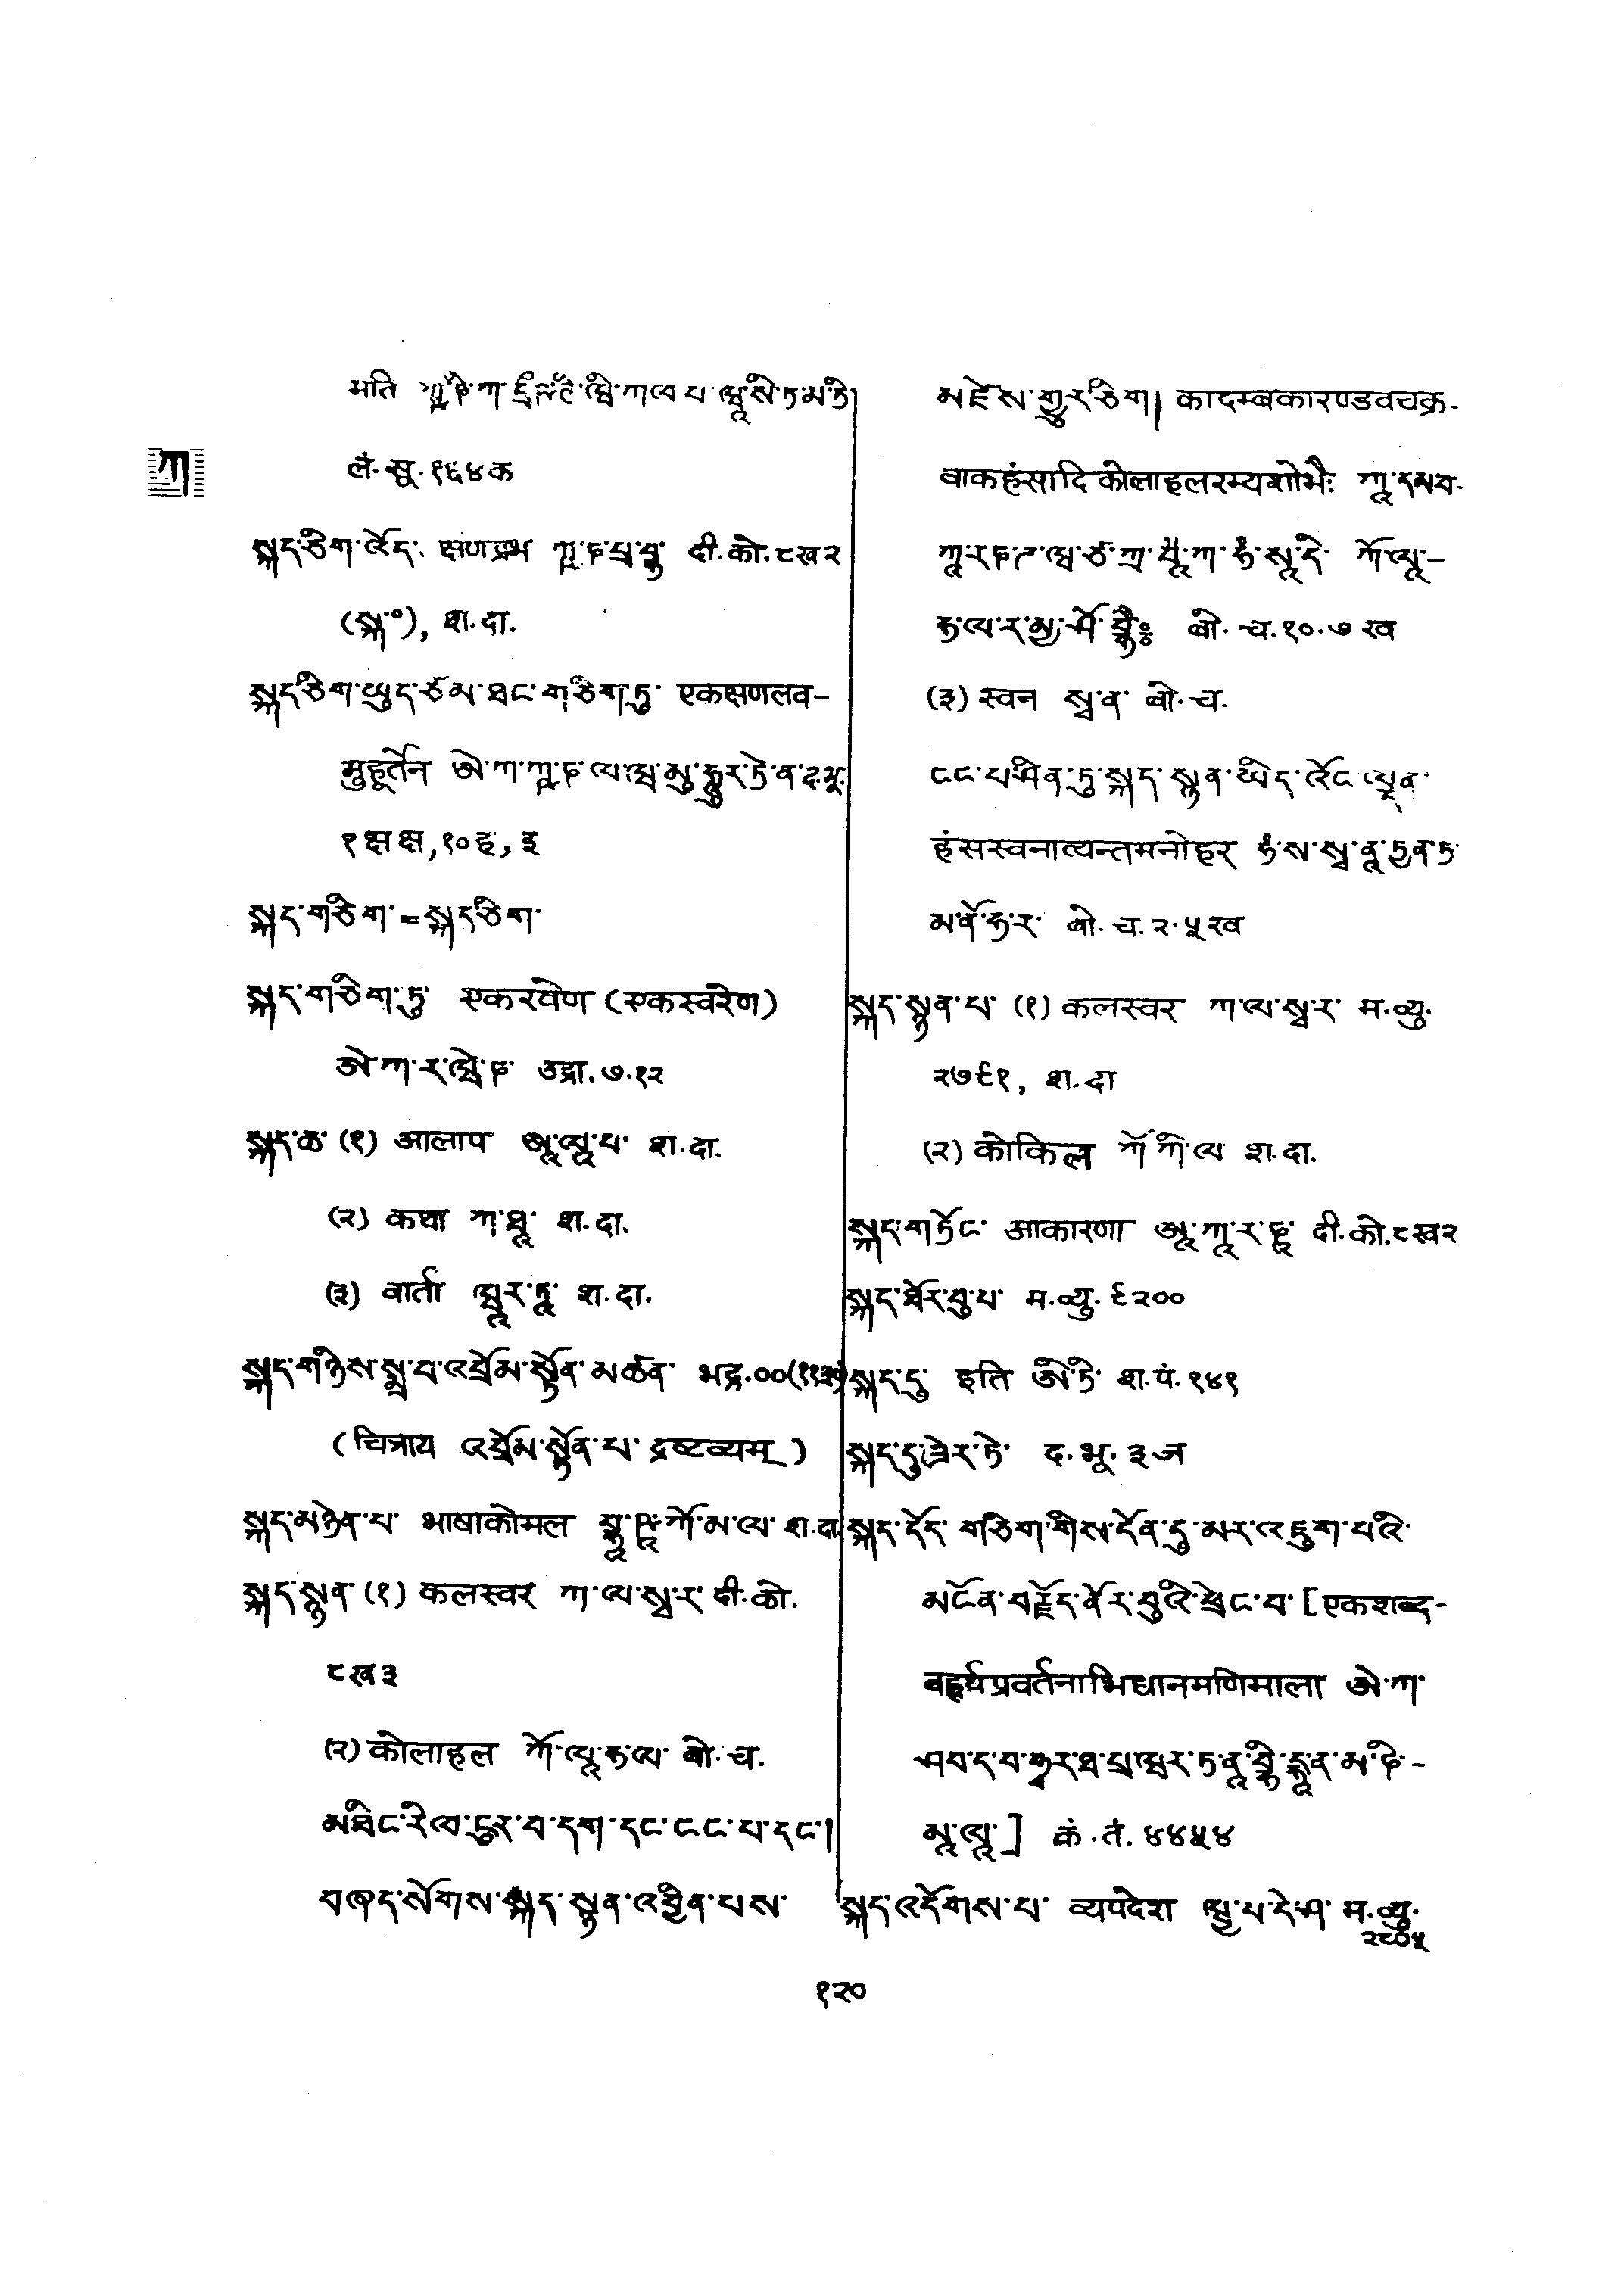 मति ཀ དྲྀཥྚི ཝི ཀལ པ ཝཱ སི ཏ མ ཏི
ལं. सू. १६४क
ཀ
སྐད་ཅིག་འོད་ क्षणप्रभ ཀྵ་ཎ་པྲ་བྷ दी.को.८ख२
(སྐ་°), श.दा.
སྐད་ཅིག་ཡུད་ཙམ་ཐང་གཅིག་ཏུ་ एकक्षणलव-
मुहूर्तेन ཨེ་ཀ་ཀྵ་ཎ་ལ་ཝ་མུ་ཧཱུར་ཏེ་ན་ द.भू.
१क्ष क्ष,१०ह,इ
སྐད་གཅིག་=སྐད་ཅིག་
སྐད་གཅིག་ཏུ་ एकरवेण (एकस्वरेण)
ཨེ་ཀ་ར་ཝེ་ཎ་ उद्रा.७.१२
སྐད་ཆ་ (१) आलाप ཨཱ་ལཱ་པ་ श.दा.
(२) कथा ཀ་ཐཱ་ श.दा.
(३) वार्ता ཝཱར་ཏཱ་ श.दा.
སྐད་གཉིས་སྨྲ་བ་འབྲོམ་སྟོན་མཚན་
(चित्राय འབྲོམ་སྟོན་པ་ द्रष्टव्यम्)
སྐད་མཉེན་པ་ भाषाकोमल བྷཱ་ཥཱ་ཀོ་མ་ལ་ श.दा.
སྐད་སྙན་ (१) कलस्वर ཀ་ལ་སྭ་ར་ दी.को.
८ख३
(२) कोलाहल ཀོ་ལཱ་ཧ་ལ་ बो.च.
མཐིང་རིལ་ངུར་བ་དག་དང་ངང་པ་དང་།
བཞད་སོགས་སྐད་སྙན་འབྱིན་པས་
མཛེས་གྱུར་ཅིག། कादम्बकारण्डवचक्र-
वाकहंसादिकोलाहलरम्यशोभैः ཀཱ་དམབ-
ཀཱ་རཎ་ཌ་ཝ་ཙ་ཀྲ་ཝཱ་ཀ་ཧཾ་སཱ་དི་ ཀོ་ལཱ་-
ཧ་ལ་ར་མྱ་ཤོ་བྷཻཿ बो.च.१०.७ख
(३) स्वन སྭ་ན་ बो.च.
ངང་པ་ཤིན་ཏུ་སྐད་སྙན་ཡིད་འོང་ལྡན་
हंसस्वनात्यन्तमनोहर ཧཾ་ས་སྭ་ནཱ་ཏྱན་ཏ་
མ་ནོ་ཧ་ར་ बो.च.२.५ख
སྐད་སྙན་པ་ (१) कलस्वर ཀ་ལ་སྭ་ར་ म.व्यु.
२७९१, श.दा
(२) कोकिल ཀོ་ཀི་ལ་ श.दा.
སྐད་གཏོང་ आकारणा ཨཱ་ཀཱ་ར་ཎཱ་ दी.को.८ख२
སྐད་ཐོར་བུ་པ་ म.व्यु.९२००
སྐད་དུ་ इति ཨི་ཏི་ श.पं.१४१
སྐད་དུ་ཟེར་ཏེ་ द.भू.३अ
སྐད་དོད་གཅིག་གིས་དོན་དུ་མར་འཇུག་པའི་
མངོན་བརྗོད་ནོར་བུའི་ཕྲེང་བ་ [एकशब्द-
बह्वर्थप्रवर्तनाभिधानमणिमाला ཨེ་ཀ་
ཤབ་ད་བ་ཧྭར་ཐ་པྲ་ཝར་ཏ་ནཱ་བྷི་དྷཱ་ན་མ་ཎི་-
མཱ་ལཱ་] कं.तं.४४५४
སྐད་འདོགས་པ་ व्यपदेश ཝྱ་པ་དེ་ཤ་ म.व्यु.
२८०५
१२०